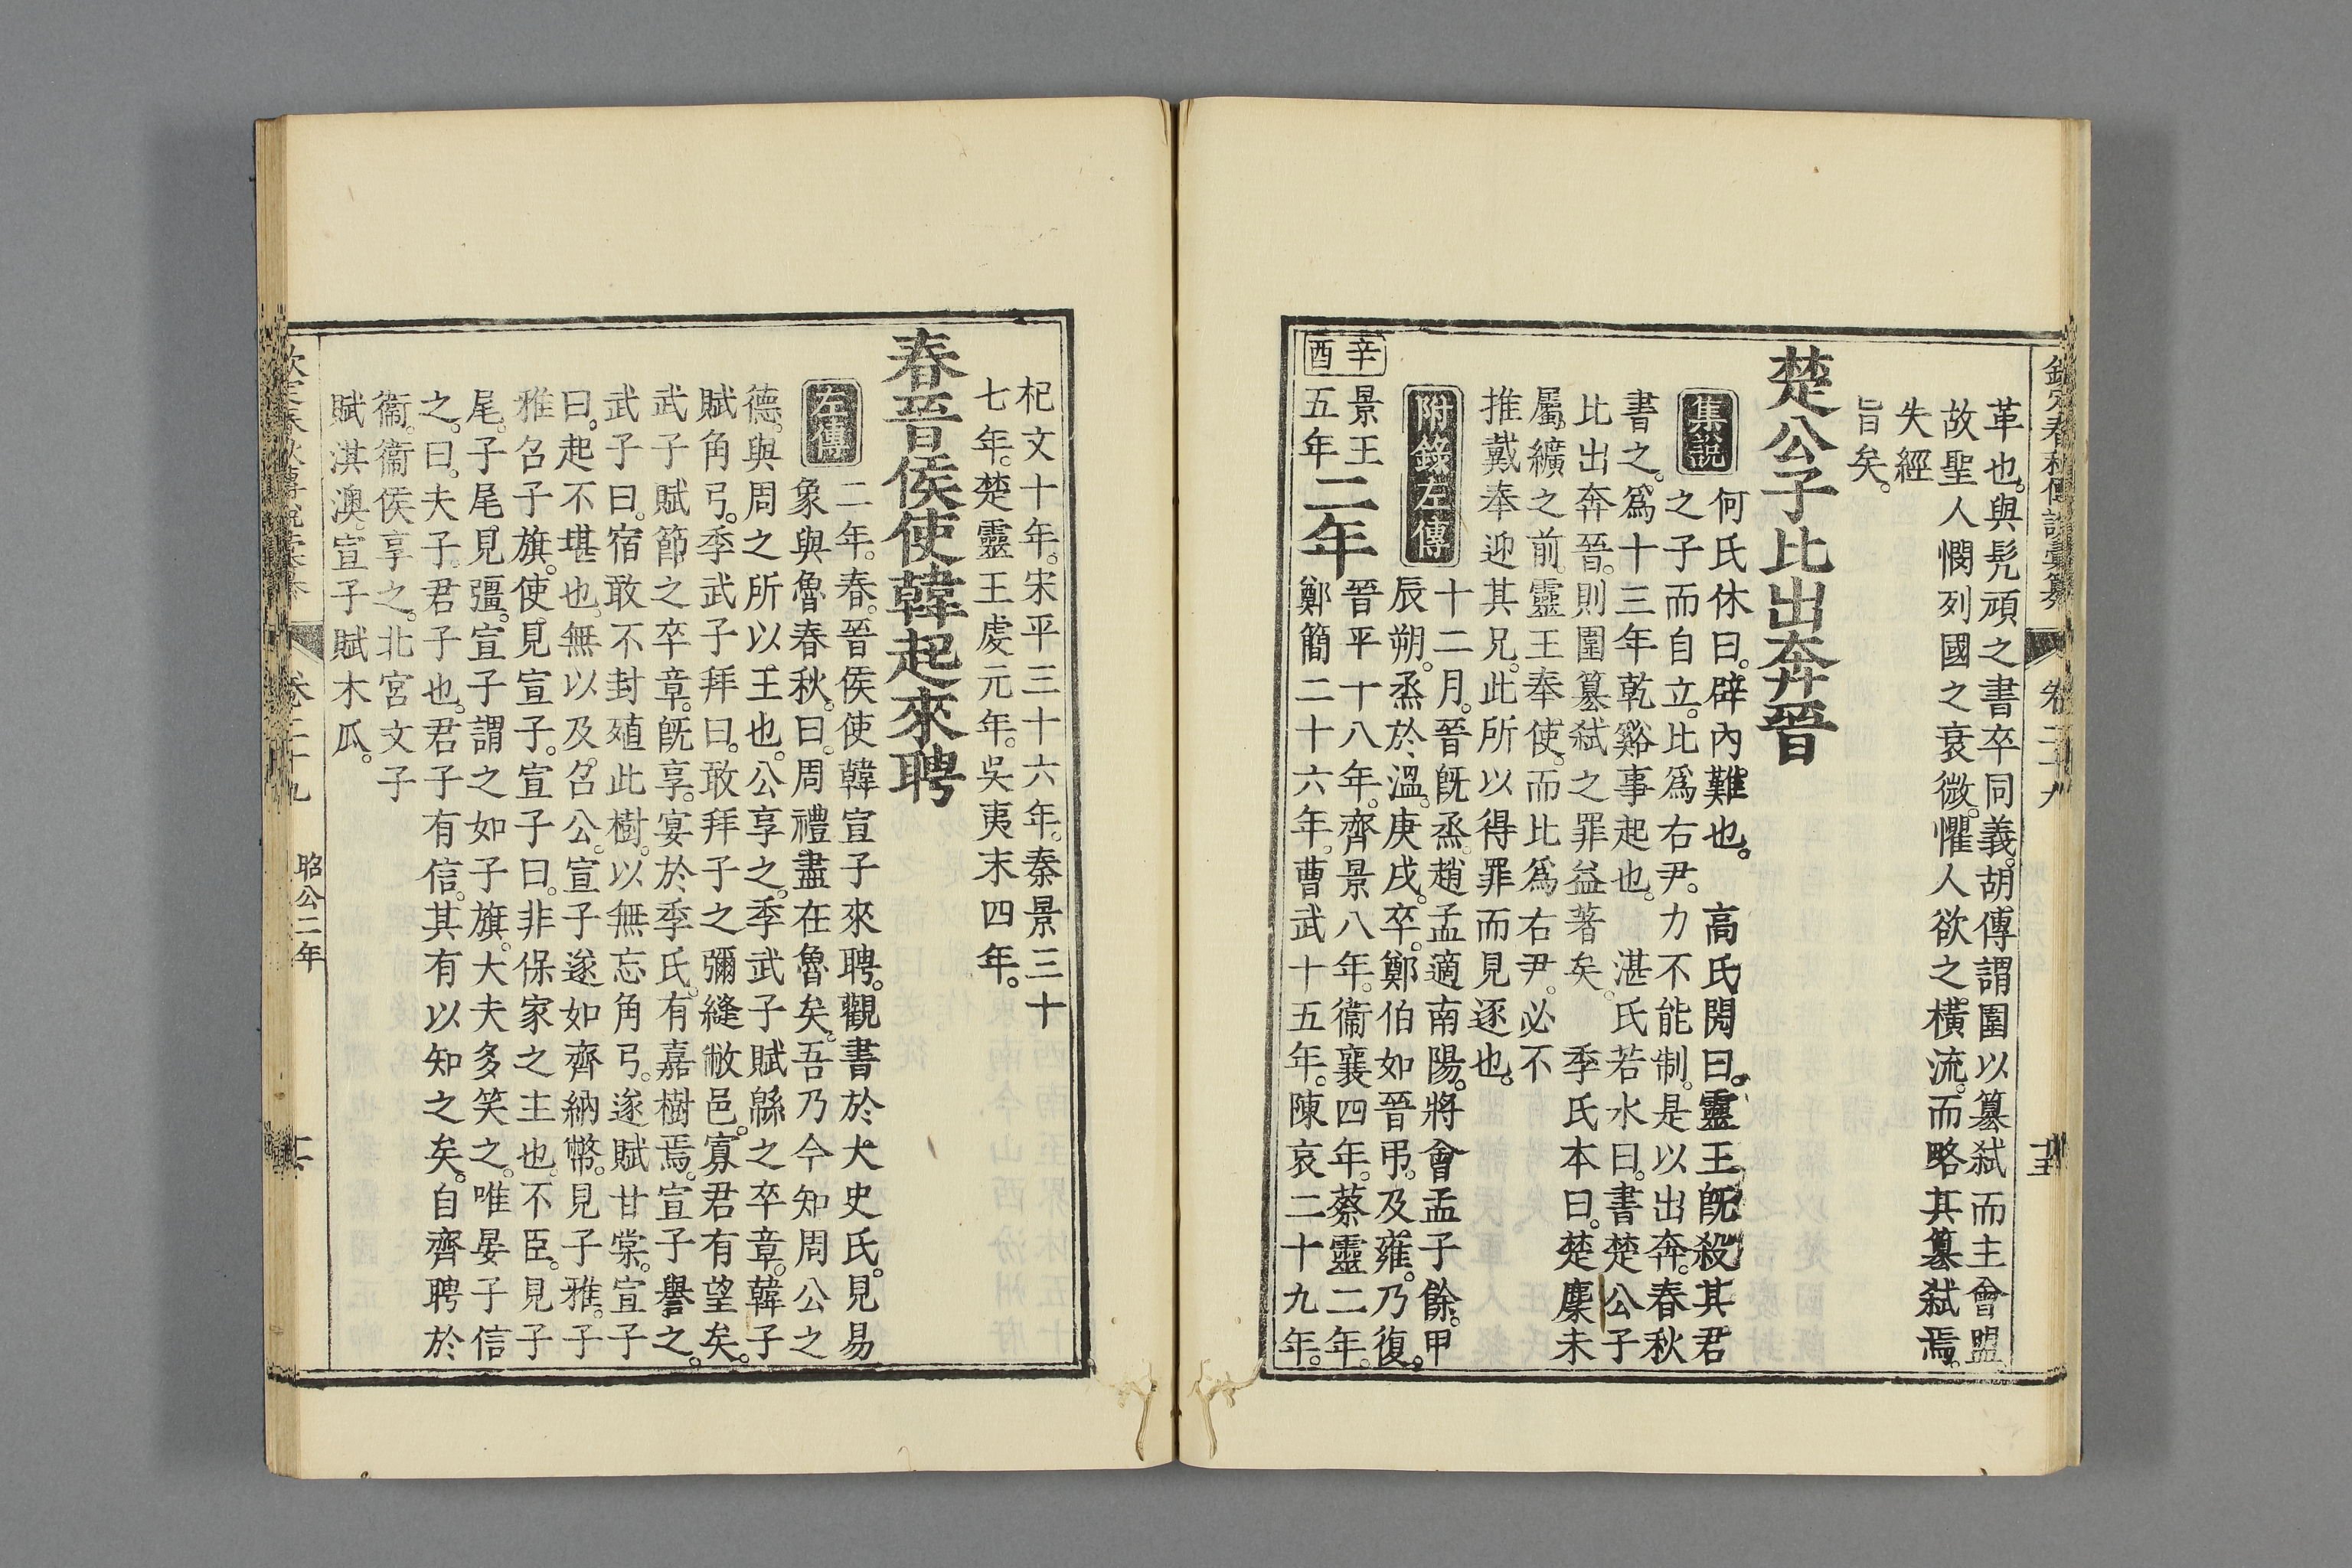 革也。與髠頑之書卒同義。胡傳謂圍以篡弒而主會盟。
故聖人憫列國之衰微。懼人欲之橫流。而略其篡弒焉。
失經
旨矣。
楚公子比出奔晉
集說
何氏休曰。辟內難也。 高氏閌曰。靈王旣殺其君
之子而自立。比爲右尹。力不能制。是以出奔。春秋
書之。爲十三年乾谿事起也。 湛氏若水曰。書楚公子
比出奔晉。則圍篡弒之罪益著矣。 季氏本曰。楚麇未
屬纊之前。靈王奉使。而比爲右尹。必不
推戴奉迎其兄。此所以得罪而見逐也。
附錄左傳
十二月。晉旣烝。趙孟適南陽。將會孟子餘。甲
辰朔。烝於溫。庚戌。卒。鄭伯如晉弔。及雍。乃復。
辛酉
景王
五年
二年
晉平十八年。齊景八年。衞襄四年。蔡靈二年。
鄭簡二十六年。曹武十五年。陳哀二十九年。
杞文十年。宋平三十六年。秦景三十
七年。楚靈王虔元年。吳夷末四年。
春晉侯使韓起來聘
左傳
二年。春。晉侯使韓宣子來聘。觀書於大史氏。見易
象與魯春秋。曰。周禮盡在魯矣。吾乃今知周公之
德。與周之所以王也。公享之。季武子賦緜之卒章。韓子
賦角弓。季武子拜曰。敢拜子之彌縫敝邑。寡君有望矣。
武子賦節之卒章。旣享。宴於季氏。有嘉樹焉。宣子譽之。
武子曰。宿敢不封殖此樹。以無忘角弓。遂賦甘棠。宣子
曰。起不堪也。無以及召公。宣子遂如齊納幣。見子雅。子
雅召子旗。使見宣子。宣子曰。非保家之主也。不臣。見子
尾。子尾見彊。宣子謂之如子旗。大夫多笑之。唯晏子信
之。曰。夫子。君子也。君子有信。其有以知之矣。自齊聘於
衞。衞侯享之。北宮文子
賦淇澳。宣子賦木瓜。
昭公二年